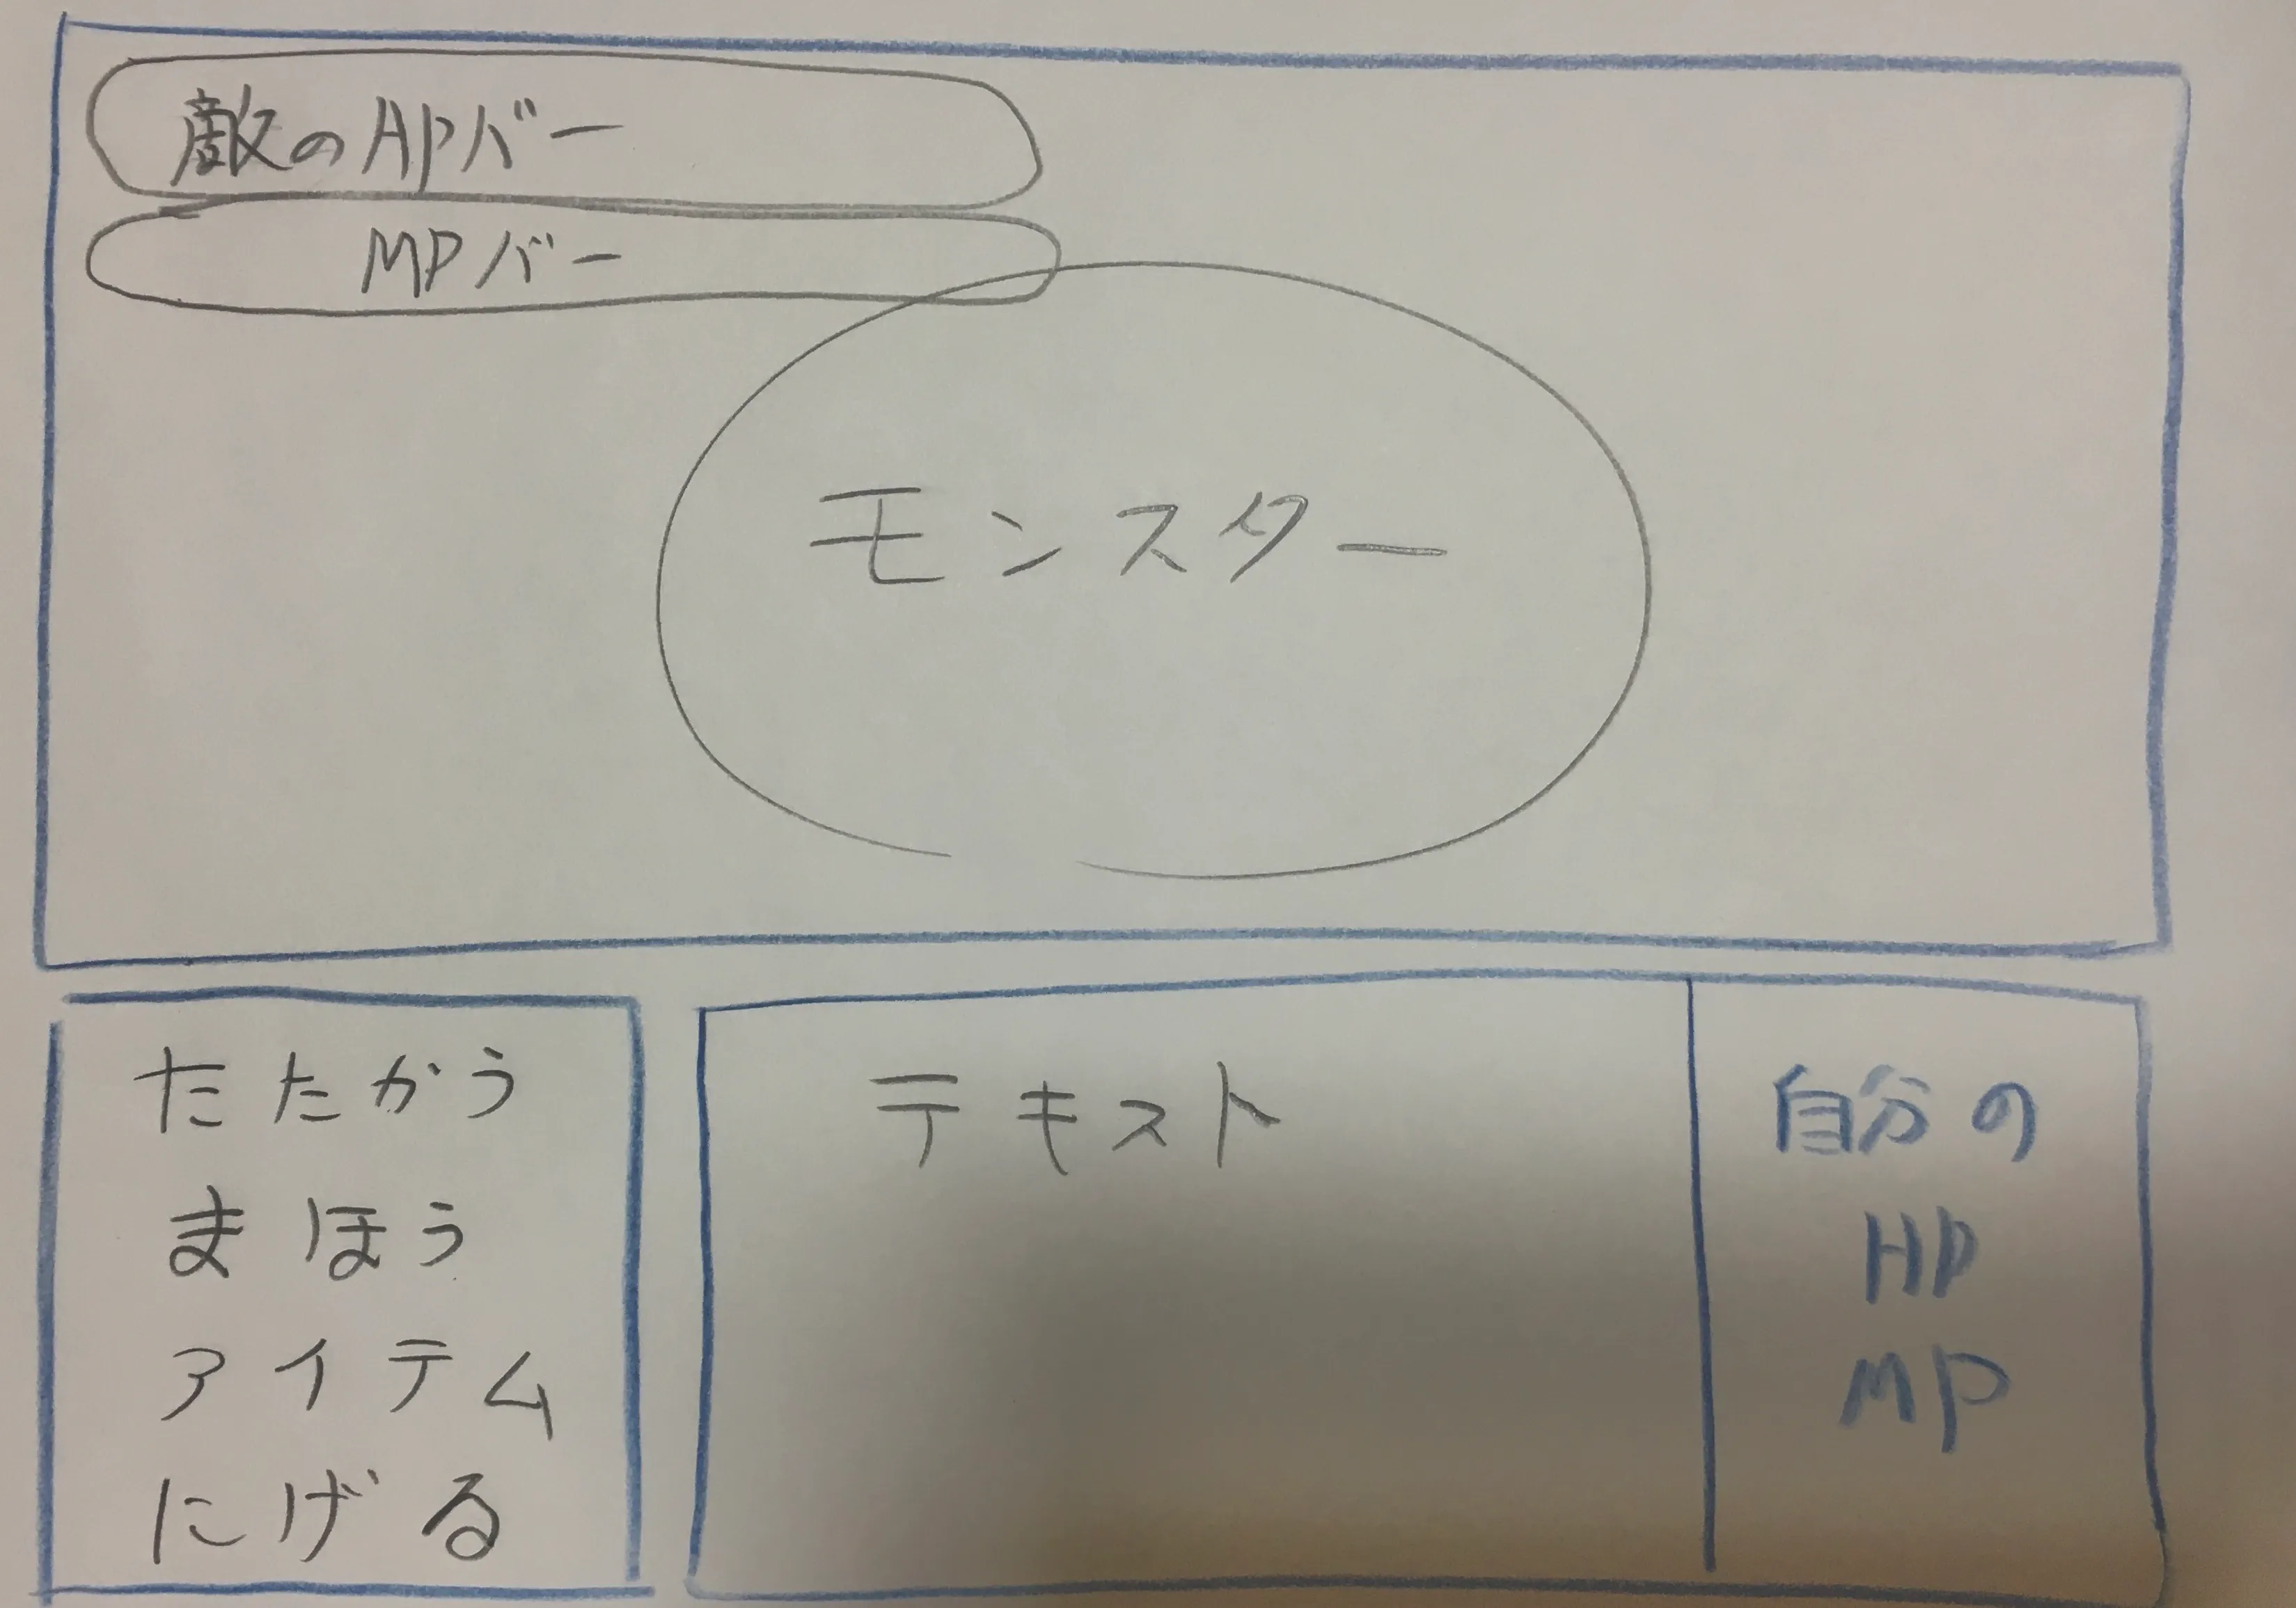 敵のAPバー
MPバー
モンスター
たたかう
まほう
アイテム
にげる
テキスト
自分の
HP
MP